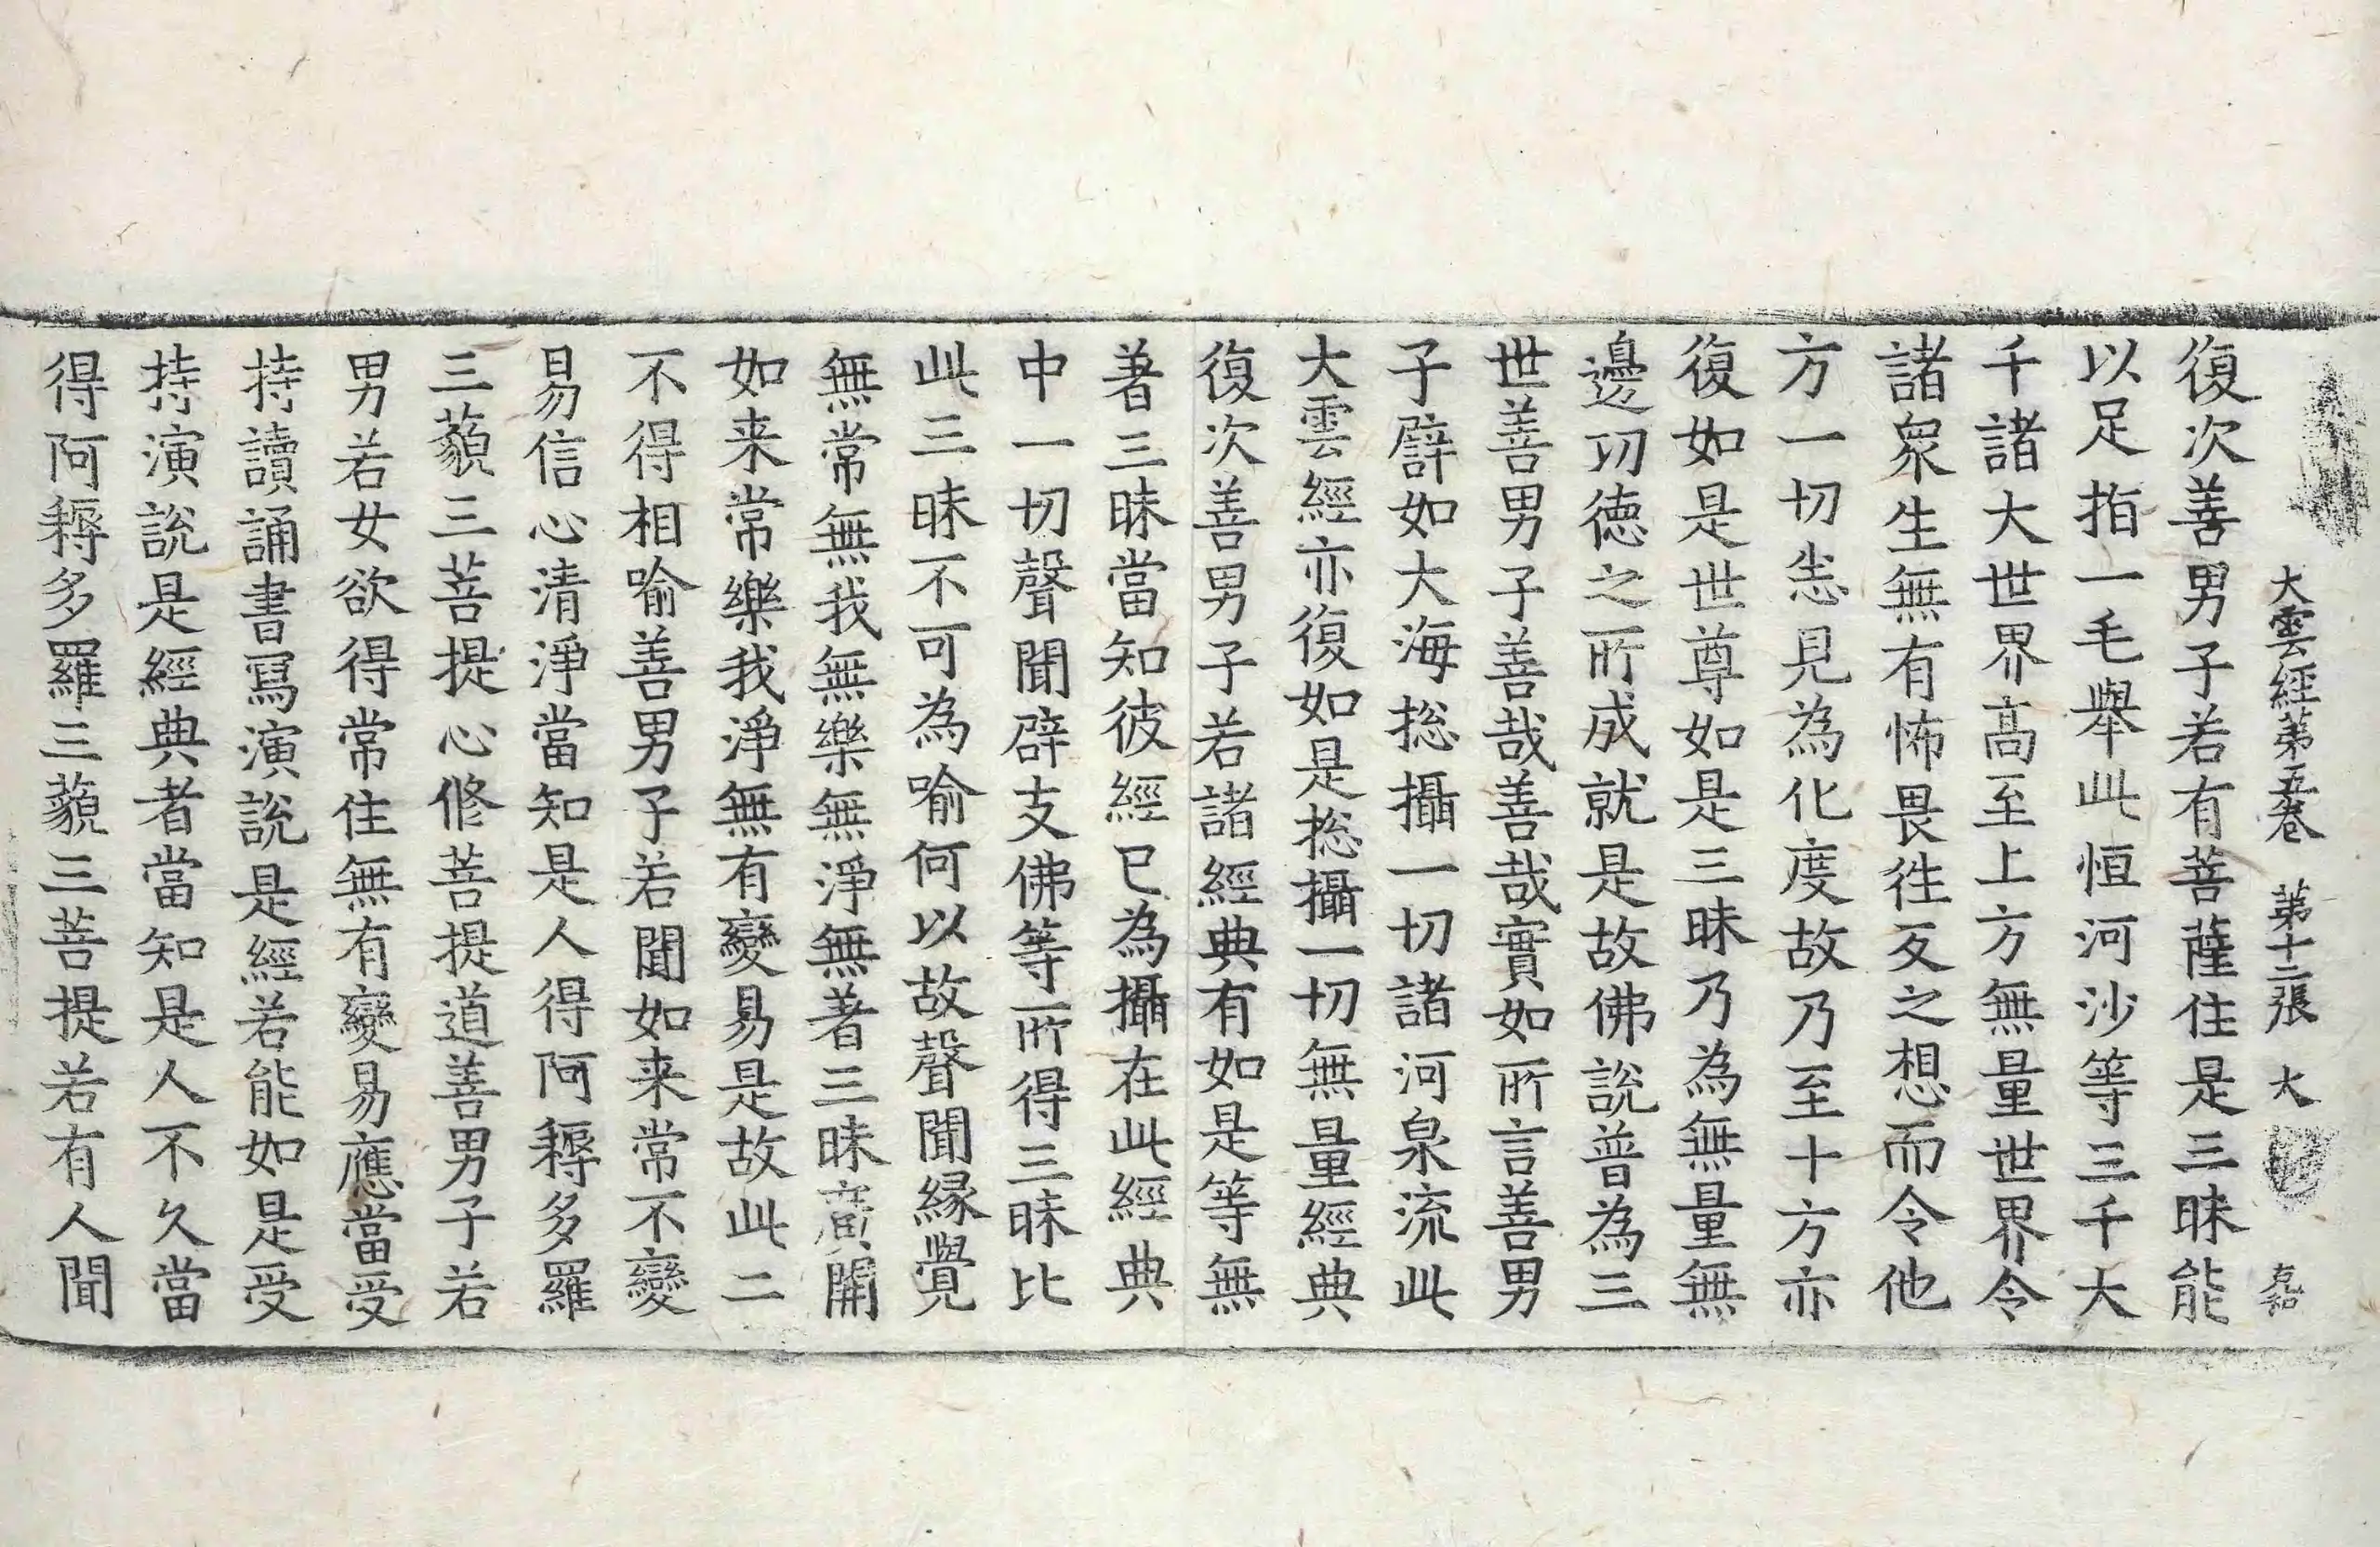 大雲經第五卷 第十二張 大
復次善男子若有菩薩住是三昧能
以足指一毛舉此恒河沙等三千大
千諸大世界高至上方無量世界令
諸衆生無有怖畏徃反之想而令他
方一切恙見為化度故乃至十方亦
復如是世尊如是三昧乃為無量無
邊功徳之所成就是故佛說普為三
世善男子善哉善哉實如所言善男
子譬如大海捴攝一切諸河泉流此
大雲經亦復如是捴攝一切無量經典
復次善男子若諸經典有如是等無
著三昧當知彼經已為攝在此經典
中一切聲聞辟支佛等所得三昧比
此三昧不可為喻何以故聲聞縁覺
無常無我無樂無淨無著三昧廣開
如来常樂我淨無有變易是故此二
不得相喻善男子若聞如来常不變
易信心清淨當知是人得阿耨多羅
三藐三菩提心修菩提道善男子若
男若女欲得常住無有變易應當受
持讀誦書寫演說是經若能如是受
持演說是經典者當知是人不久當
得阿耨多羅三藐三菩提若有人聞